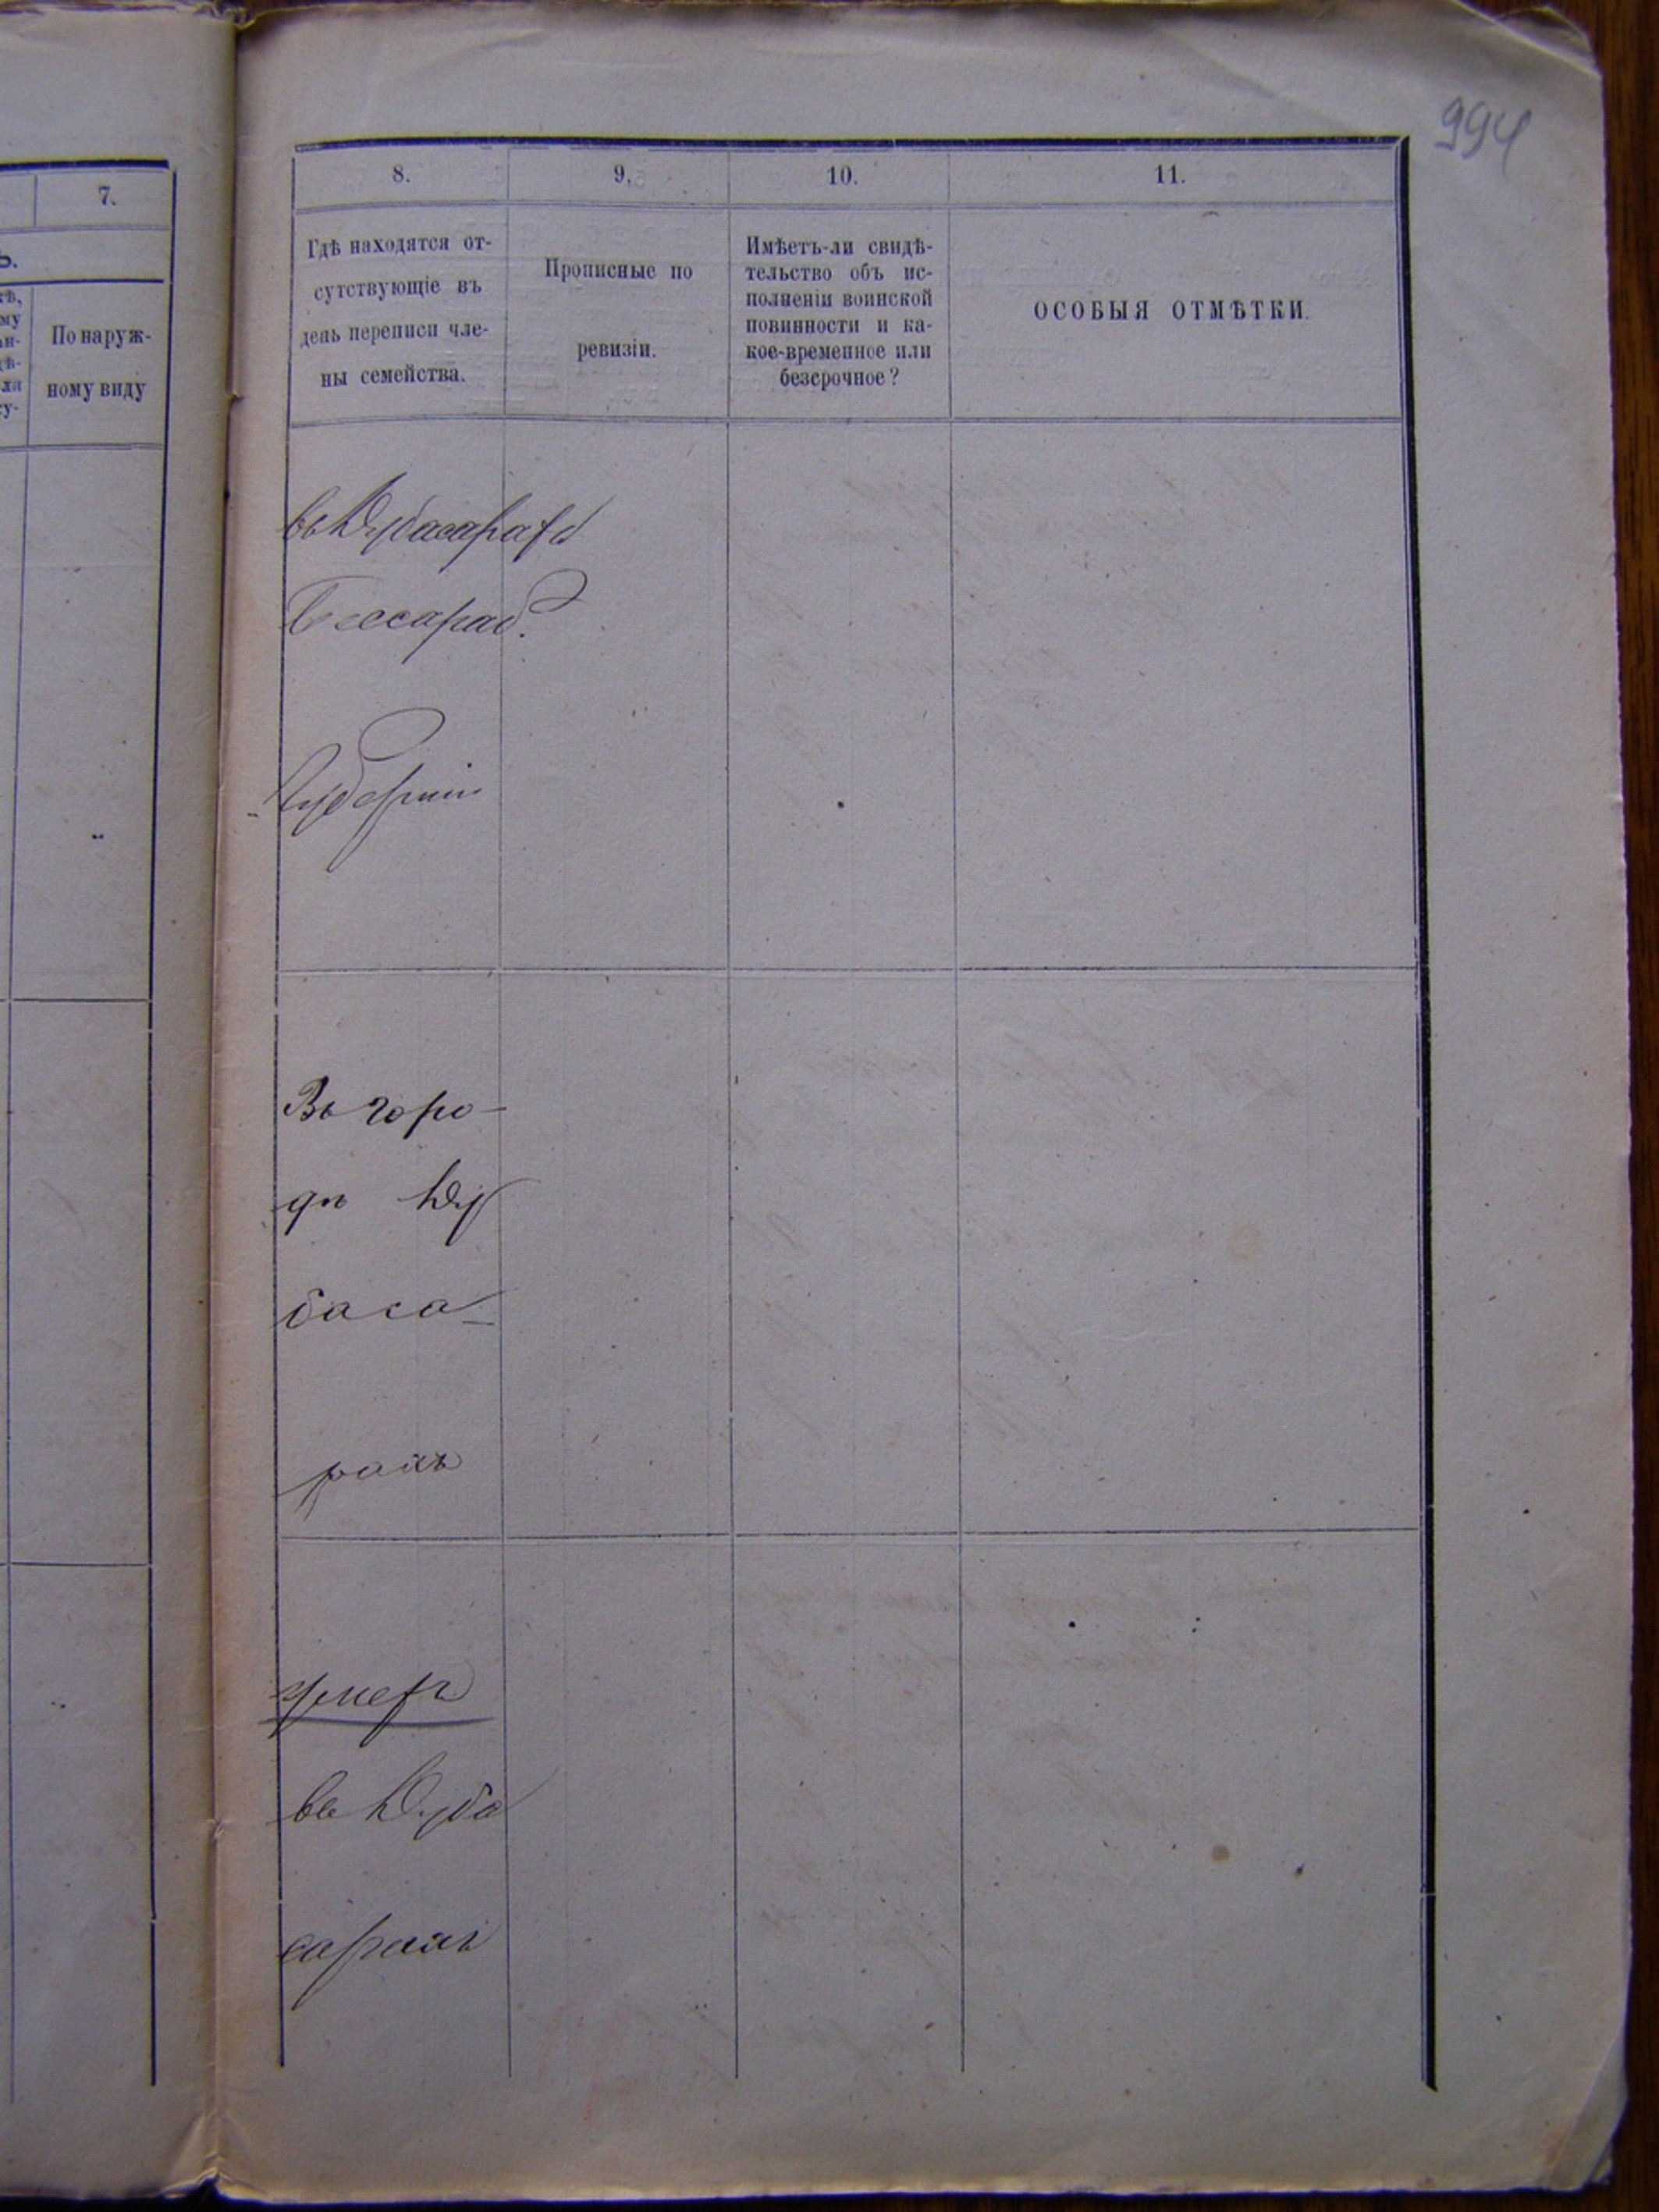 994
7.
8.
9.
10.
11.
По наруж-
ному виду
Гдѣ находятся от-
сутствующіе въ
день переписи чле-
ны семейства.
Прописные по
ревизіи.
Имѣетъ-ли свидѣ-
тельство объ ис-
полненіи воинской
повинности и ка-
кое-временное или
безсрочное?
ОСОБЫЯ ОТМѢТКИ.
въ Дубасарахъ
Бессараб.
Губерніи
Въ горо-
дѣ Ду
баса-
рахъ
умеръ
въ Дуба
сарахъ